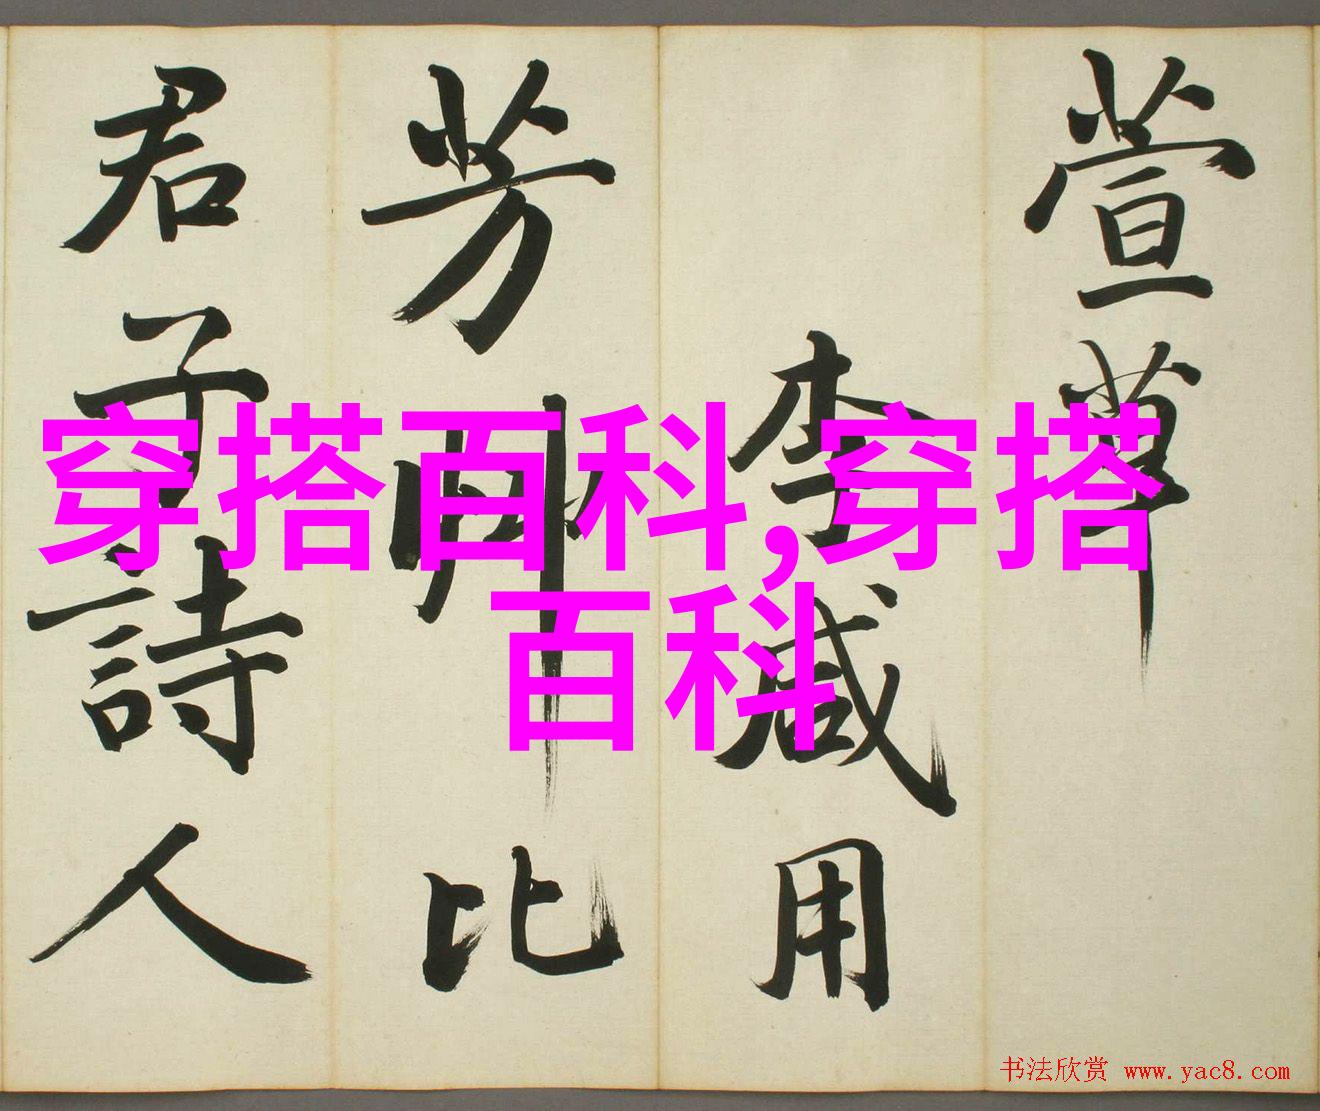 萱草
李咸用
芳艸比
君子詩人
穿搭百科,穿搭
百科
书法欣赏 www.yac8.com